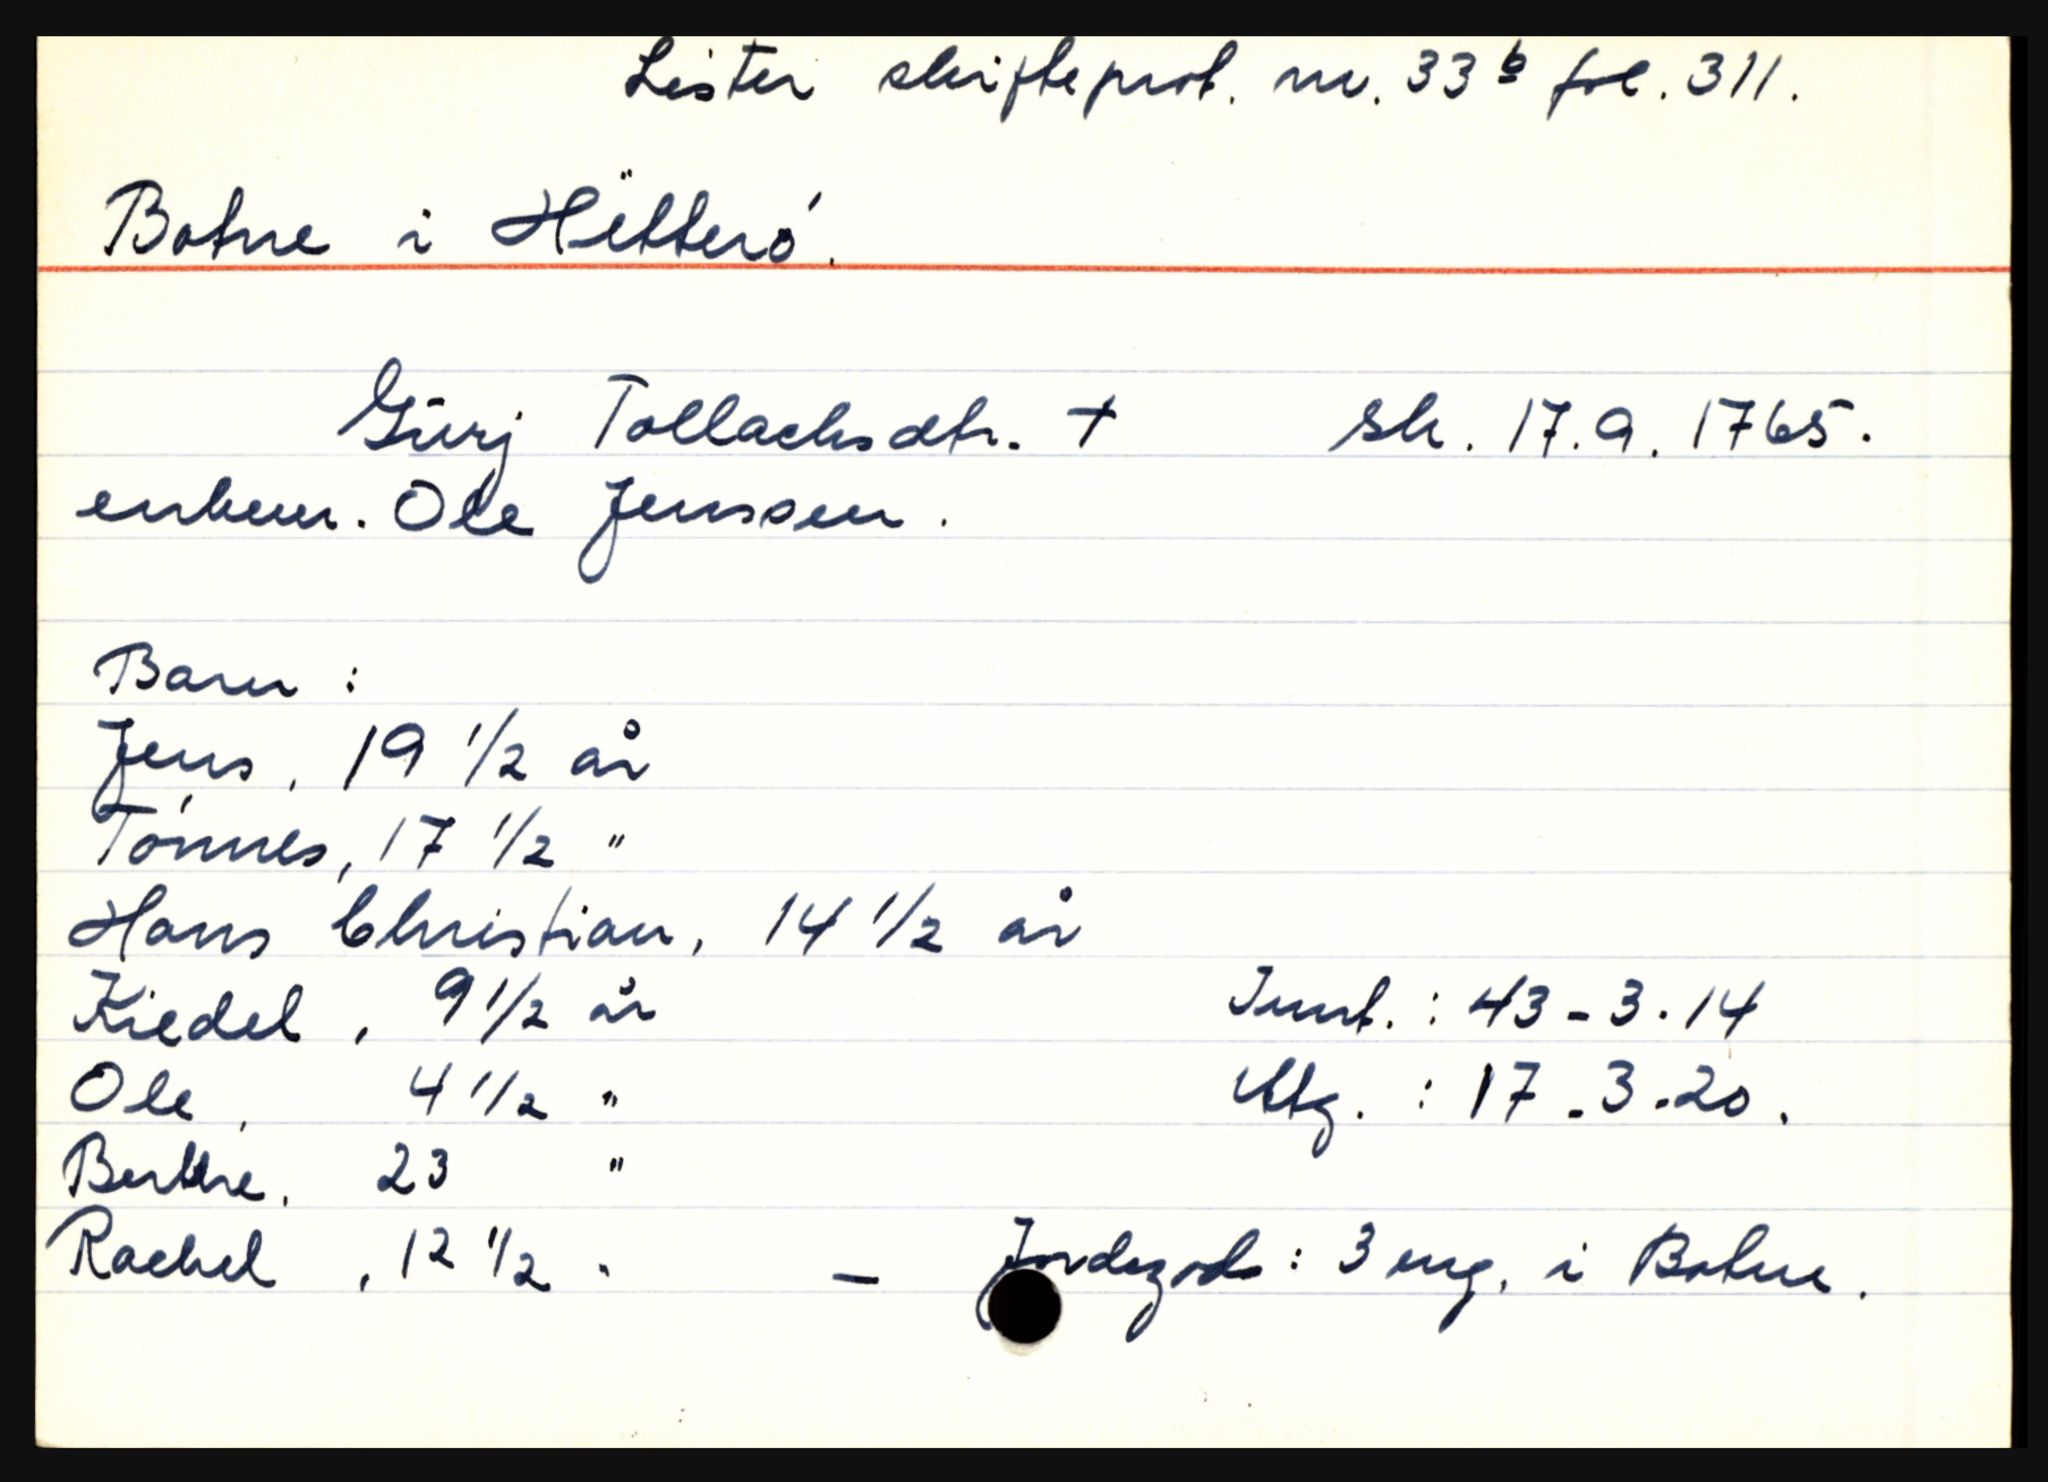 Lister skifteprot. nr. 33b fol. 311.
Botne i Hëtterö.
Gurj Tollachsdtr. † Sk. 17.9.1765.
enkem. Ole Jenssen.
Barn :
Jens, 19 1/2 år
Tönnes, 17 1/2 "
Hans Christian, 14 1/2 år
Kiedel, 9 1/2 år Innt. : 43-3-14
Ole, 4 1/2 " Utg. : 17-3-20.
Berthe, 23 "
Rachel, 12 1/2 " — Jordegods : 3 eng. i Botne.